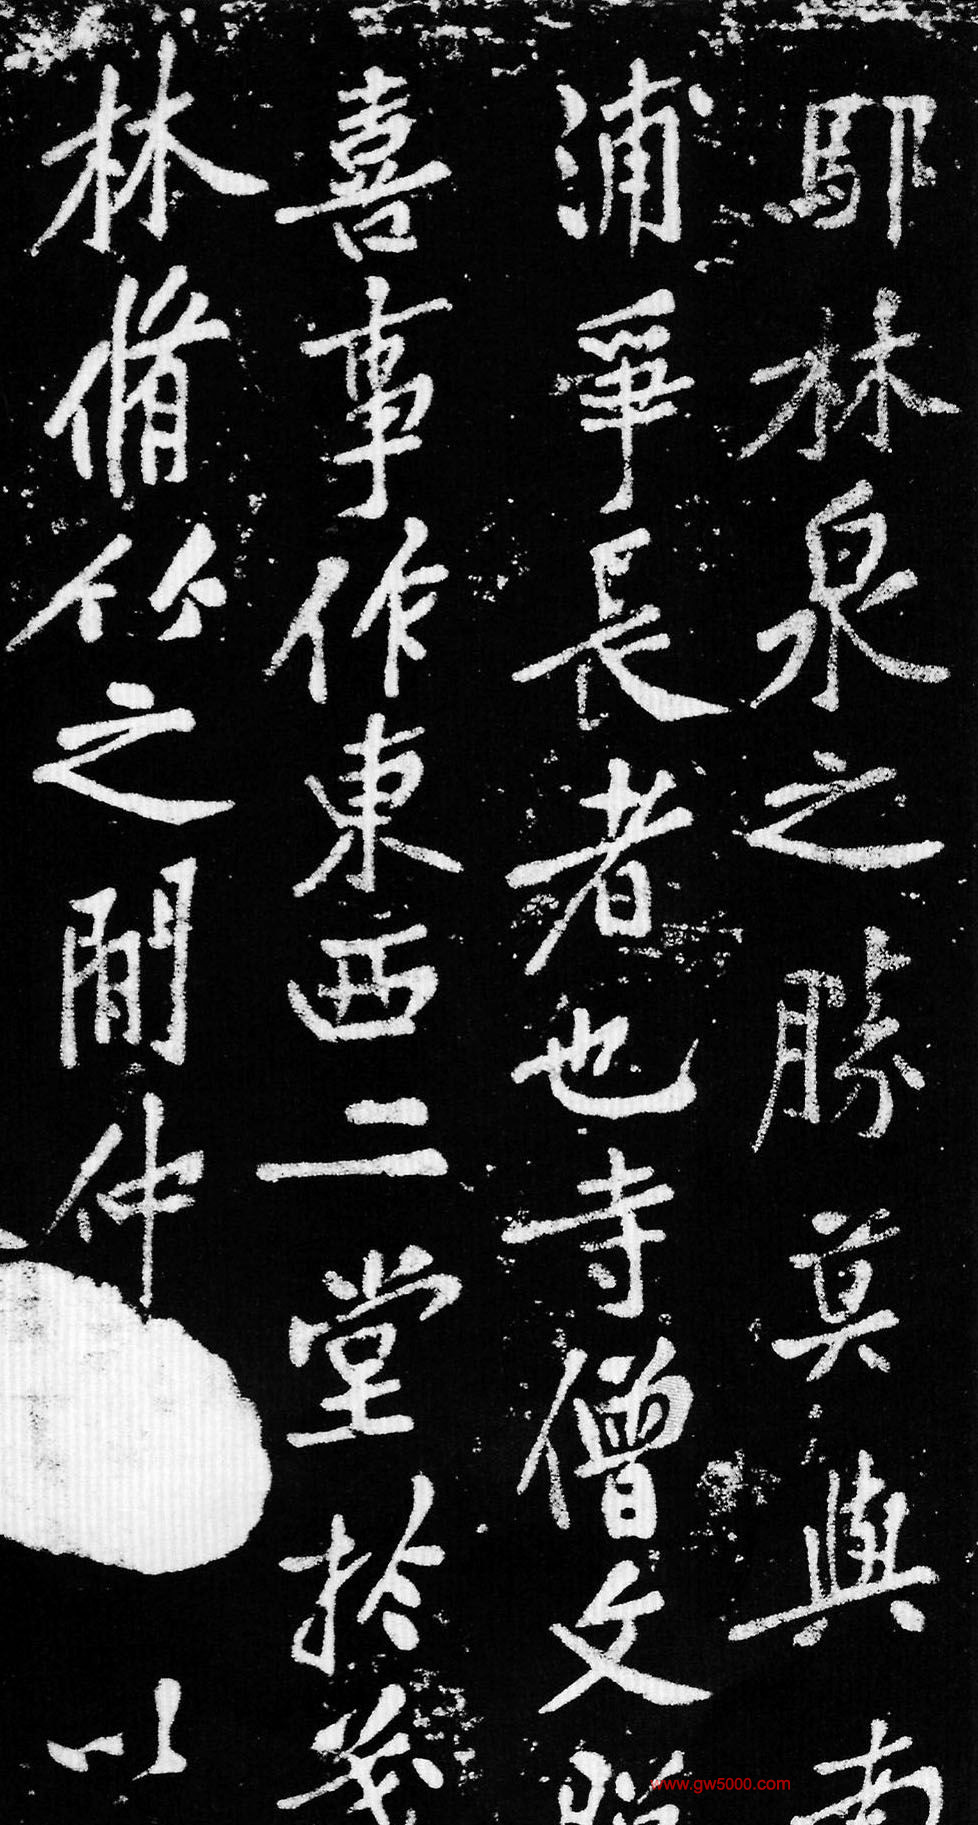 耶林泉之勝莫與南
浦爭長者也寺僧文照
喜事作東西二堂於茂
林脩竹之間仲以
www.gw5000.com